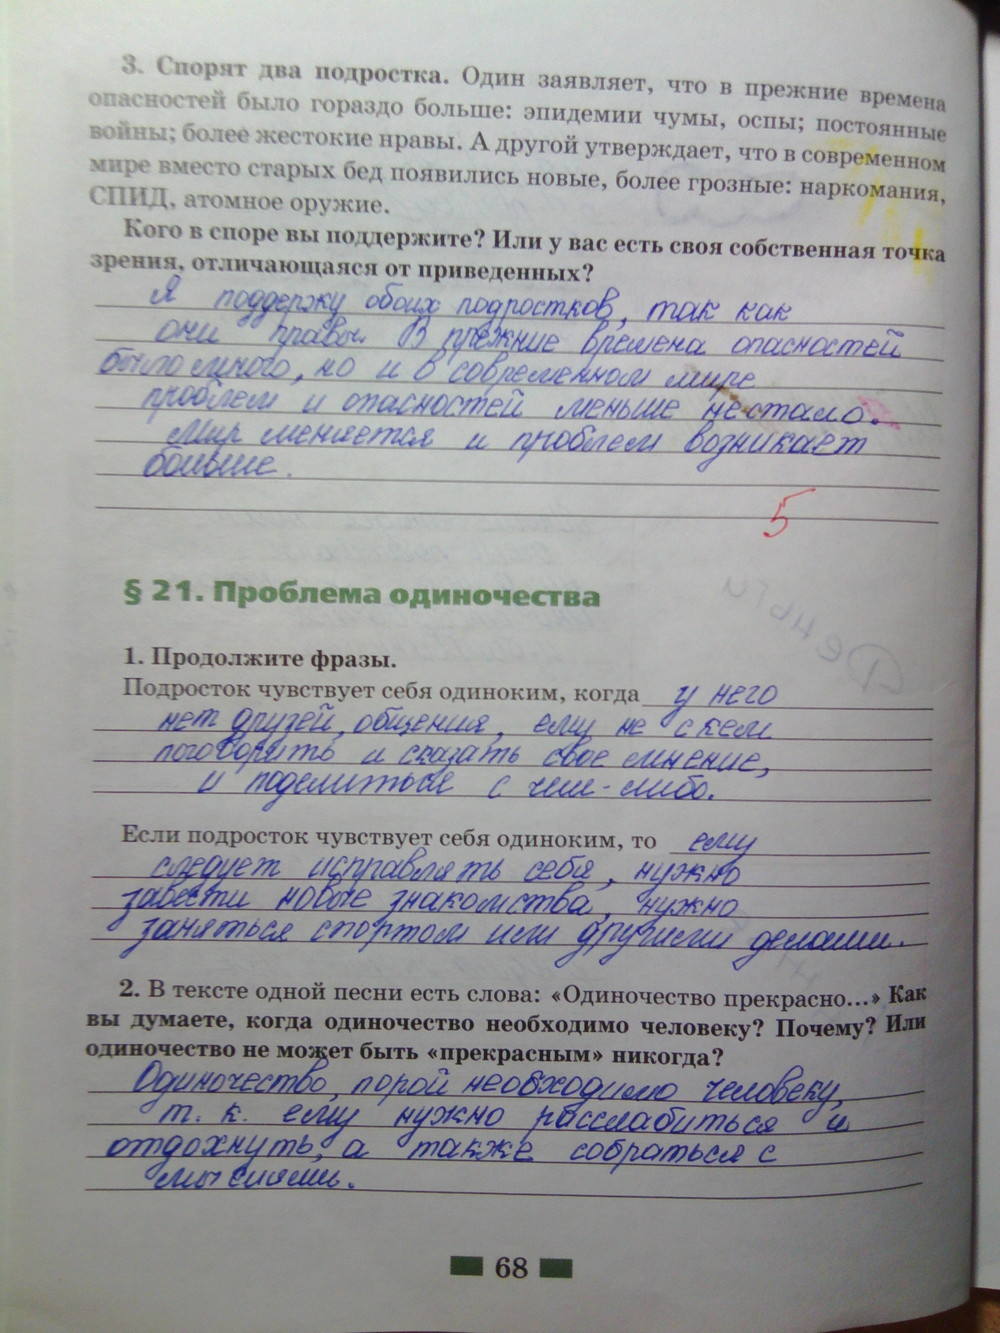 3. Спорят два подростка. Один заявляет, что в прежние времена
опасностей было гораздо больше: эпидемии чумы, оспы; постоянные
войны; более жестокие нравы. А другой утверждает, что в современном
мире вместо старых бед появились новые, более грозные: наркомания,
СПИД, атомное оружие.
Кого в споре вы поддержите? Или у вас есть своя собственная точка
зрения, отличающаяся от приведенных?
Я поддержу обоих подростков, так как
они правы. В прежние времена опасностей
было много, но и в современном мире
проблем и опасностей меньше не стало.
Мир меняется и проблем возникает
больше.
5
§ 21. Проблема одиночества
1. Продолжите фразы.
Подросток чувствует себя одиноким, когда у него
нет друзей, общения, ему не с кем
поговорить и сказать свое мнение,
и поделиться с чем-либо.
Если подросток чувствует себя одиноким, то ему
следует исправлять себя, нужно
завести новые знакомства, нужно
заняться спортом или другими делами.
2. В тексте одной песни есть слова: «Одиночество прекрасно...» Как
вы думаете, когда одиночество необходимо человеку? Почему? Или
одиночество не может быть «прекрасным» никогда?
Одиночество, порой необходимо человеку,
т. к. ему нужно расслабиться и
отдохнуть, а также собраться с
мыслями.
68